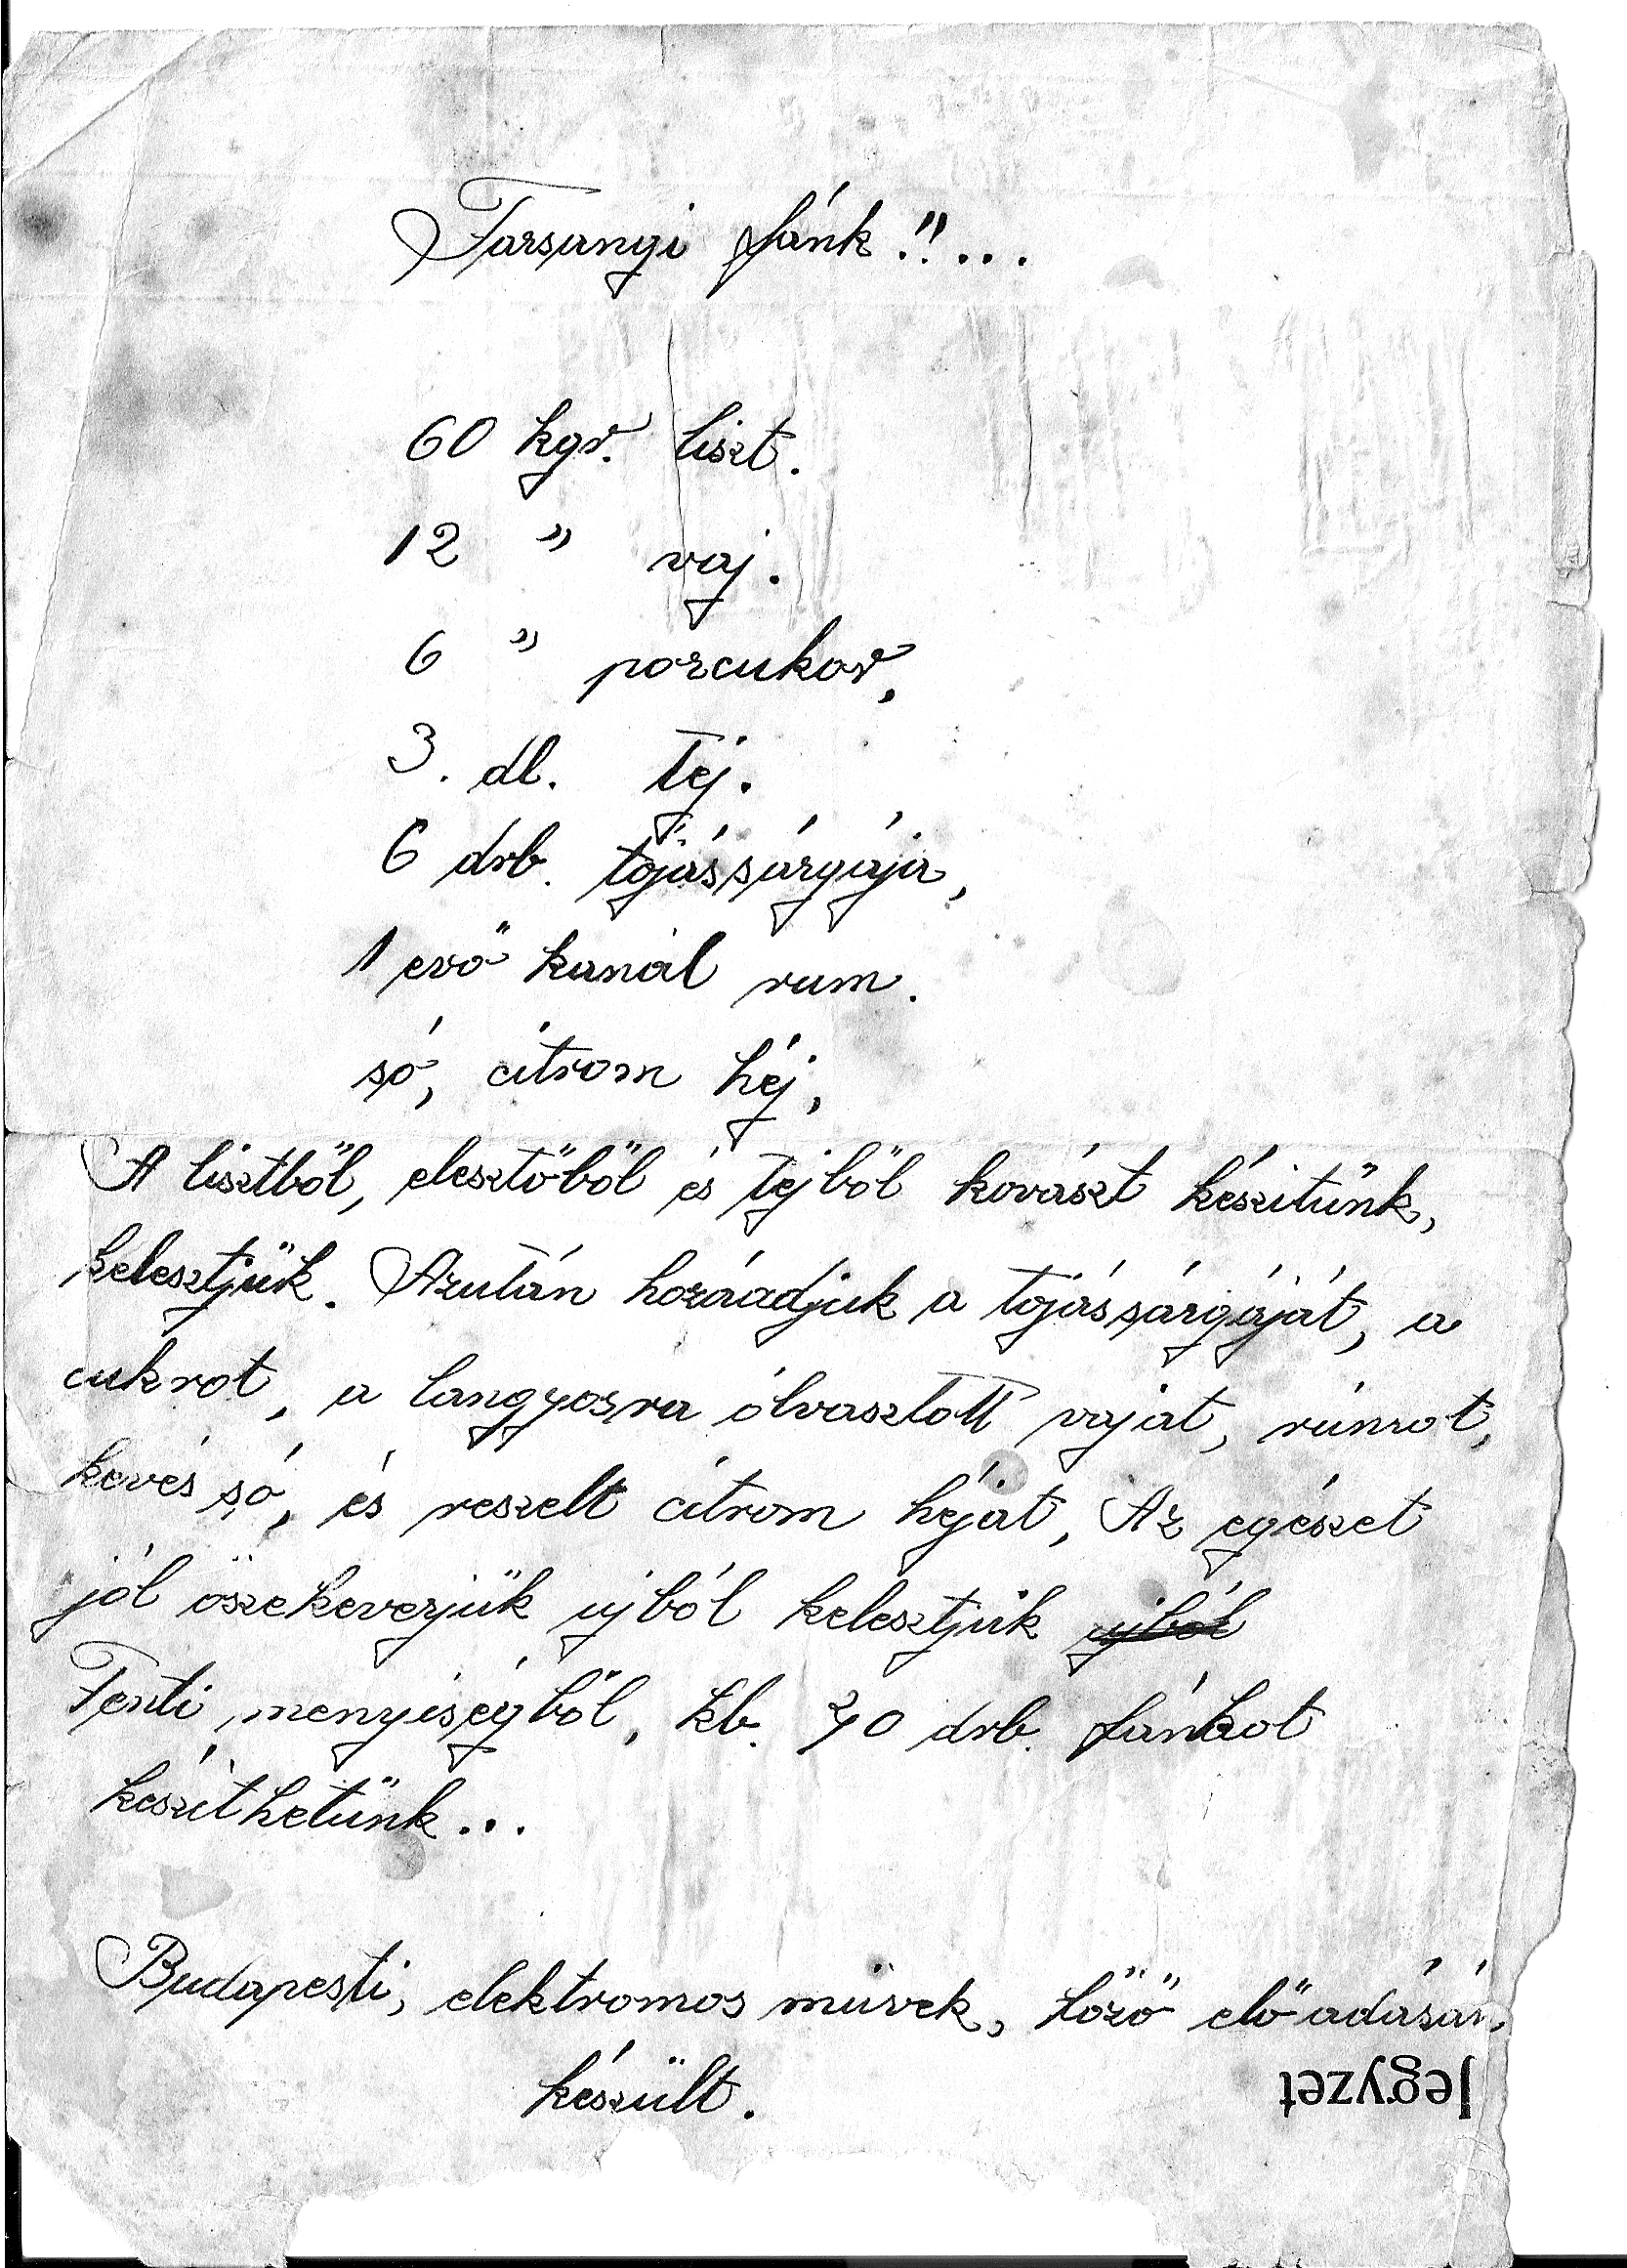 Farsangi fánk!!...
60 kgr. liszt.
12 " vaj.
6 " porcukor,
3. dl. tej.
6 drb. tojássárgája,
1 evő kanál rum.
só, citrom héj,
A lisztből, elesztőből és tejből kovászt készitünk,
kelesztjük. Azután hozáadjuk a tojássárgáját, a
cukrot, a langyosra ólvasztott vaját, rúmot,
kevés só, és reszelt citrom héját, Az egészet
jól öszekeverjük ujból kelesztjük ujból
Fenti menyiségből, kb. 30 drb. fánkot
készíthetünk...
Budapesti, elektromos müvek, főző előadásán
készült.
Jegyzet